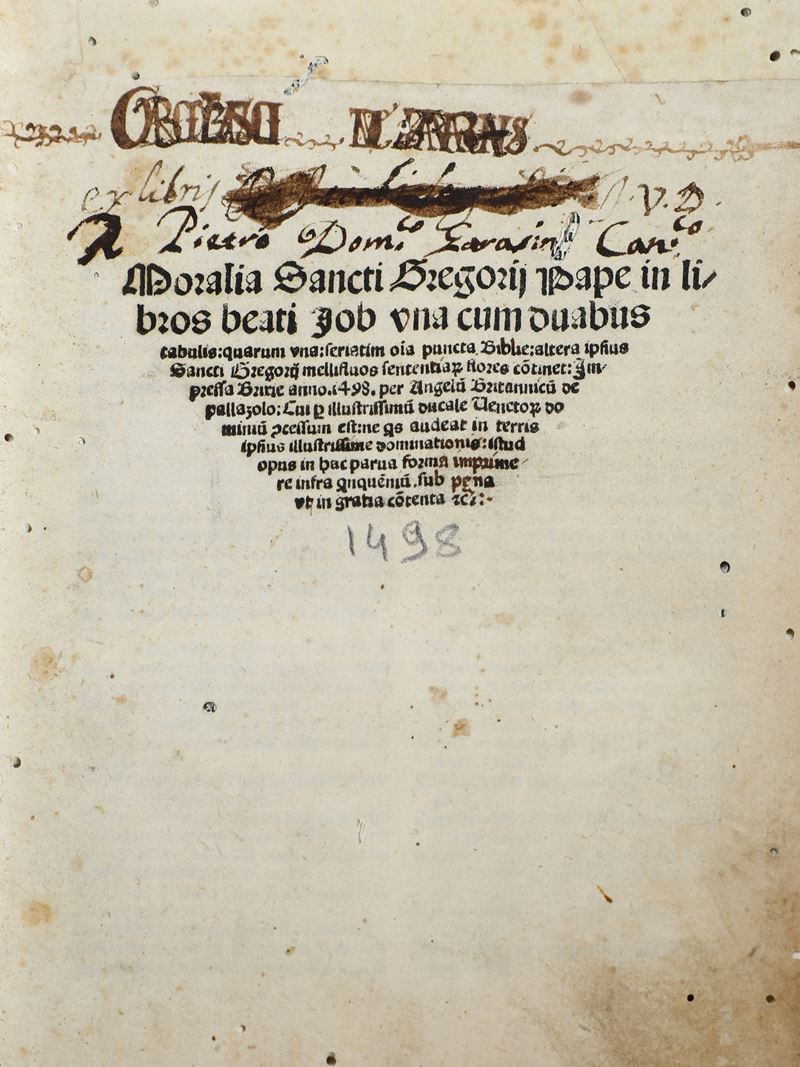 ex libris J. V. D.
Pietro Dom.co Can.co
Moralia Sancti Gregorij Pape in li/
bros beati Job vna cum duabus
tabulis: quarum vna: seriatim oīa puncta Biblie: altera ipsius
Sancti Gregorij mellifluos sententiaꝝ flores cōtinet: Im/
pressa Brixie anno. 1498. per Angelū Britannicū de
pallazolo: Cui ꝑ illustrissimū ducale Venetoꝝ do
miniū ꝓcessum est: ne q̄s audeat in terris
ipsius illustrissime dominationis: istud
opus in hac parua forma imprime
re infra qnquēniū. sub pęna
vt in gratia cōtenta ⁊cͣ:·
1498